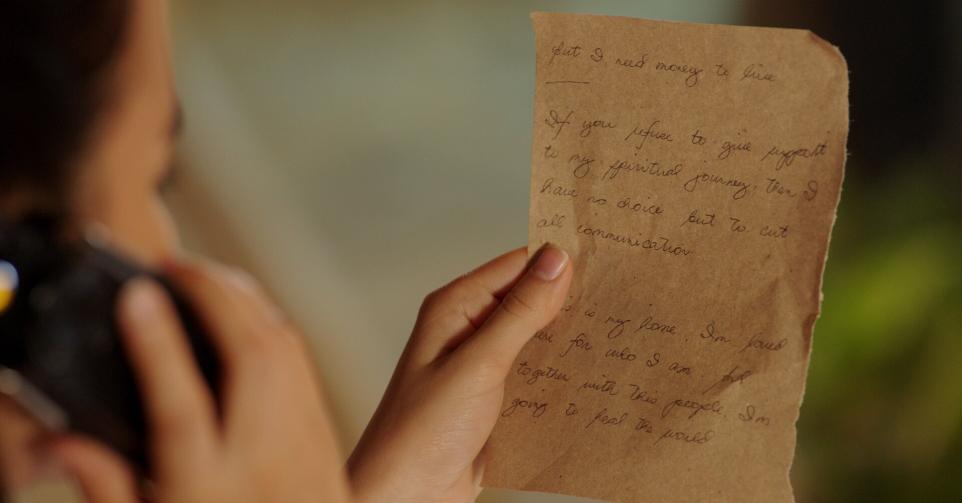 But I need money to live
If you refuse to give support
to my spiritual journey, then I
have no choice but to cut
all communication
is my home. I'm loved
for who I am
together with this people. I'm
going to heal the world